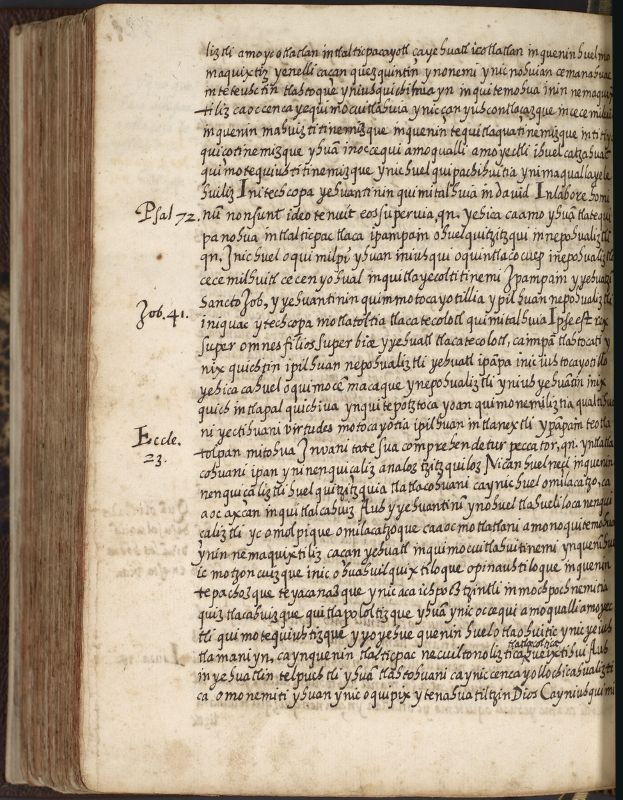 liztli amo ycotlatlan in tlalticpacayotl ça yehuatl icotlatlan inquenin huel mo
maquixtiz yenelli caçan quezquintin ynonemi ynic nohuian cemanahuac
intetevhctin tlahtoque yniuhqui chihua yn inquitemohua inin nemaqui
tiliz ca oc cenca ye quimocuitlahuia ynic çan yuh contlaçazque in cecemilhui
inquenin mahuiztitinemizque inquenin tequitlaquatinemizque inti
quicotinemizque yhuã inoccequi amoqualli amo yectli ihuelcatzahuac
quimotequiuhtitinemizque ynic huel quipachihuitia ynimaqualla yele
huiliz Initechcopa yehuantinin quimitalhuia in david In labore homi
Psal 72. nũ non sunt ideo tenuit eos superuia, qn. yehica ca amo yhuã tlateoqui
panohua in tlalticpac tlaca ipampain ohuelquitzitzqui innepohualiztli
qn. Inic huel oquimilpi yhuan iniuhqui oquintlacocuep inepohualiztli
cecemilhuitl cecenyohual inquitlayecoltitinemi Ipampain yyehuatzin
Sancto Job, yyehuantinin quimmotocayotillia ypilhuan nepohualiztli
Job. 41. iniquac ytechcopa motlatoltia tlacatecolotl quimitalhuia Ipse est rex
super omnes filios superbiæ yyehuatl tlacatecolotl, campã tlahtocati y
nix quichtin ipilhuan nepohualiztli yehuatl ipãpa inic iuhtocayotillo
yehica cahuel oquimocẽmacaque ynepohualiztli yniuh yehuãtin inix
quich intlapal quichiua ynquitepotztoca yoan quimonemiliztia qualtihua
ni yectihuani virtudes motocayotia ipilhuan in tlanextli ypãpain teotla
Eccle. 23. tolpan mitohua In vanitate sua comprehendetur peccator, qn. yntlatla
cohuani ipan yninenquicaliz analoz tzitzquiloz Nican huel neçi inquenin
nenquiçaliztli huel quitzitzquia tlatlacohuani caynic huel omilacatzo, ca
aoc axcan inquitlalcahuiz Auh yyehuantini ynohuel tlahueliloca nenqui
caliztli yc omolpique omilacatzoque ca aoc motlatlani amono quitemohua
ynin nemaquixtiliz cacan yehuatl inquimocuitlahuitinemi ynquenihu
ic motzoncuizque inic ohuahuilquixtiloque opinauhtiloque inquenin
tepachozque teyacanazque ynic aca ichpochtzintli inmochpochnemitia
quiztlacahuizque quitlapololtizque yhuã ynic occequi amoqualli amo yec
tli quimotequiuhtizque yyoyehue quenin huel otlaohuitic ynic yeiuh
tlamani yn, cayn quenin tlalticpac necuiltonoliztica tlatlacoltica hueixtihui Auh
inyehuatlin telpuchtli yhuã tlahtohuani caynic cenca yollochicahualizti
ca omonemiti yhuan ynic oquipix ytenahuatiltzin Dios Cayniuhquimi